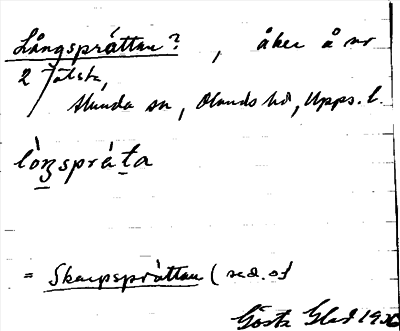 Långsprättan? , åker å nr
2 Jälsta,
Alunda sn, Olands hd, Upps. l.
lòŋspráta
= Skarpsprättan (red. of
Gösta Gled 19